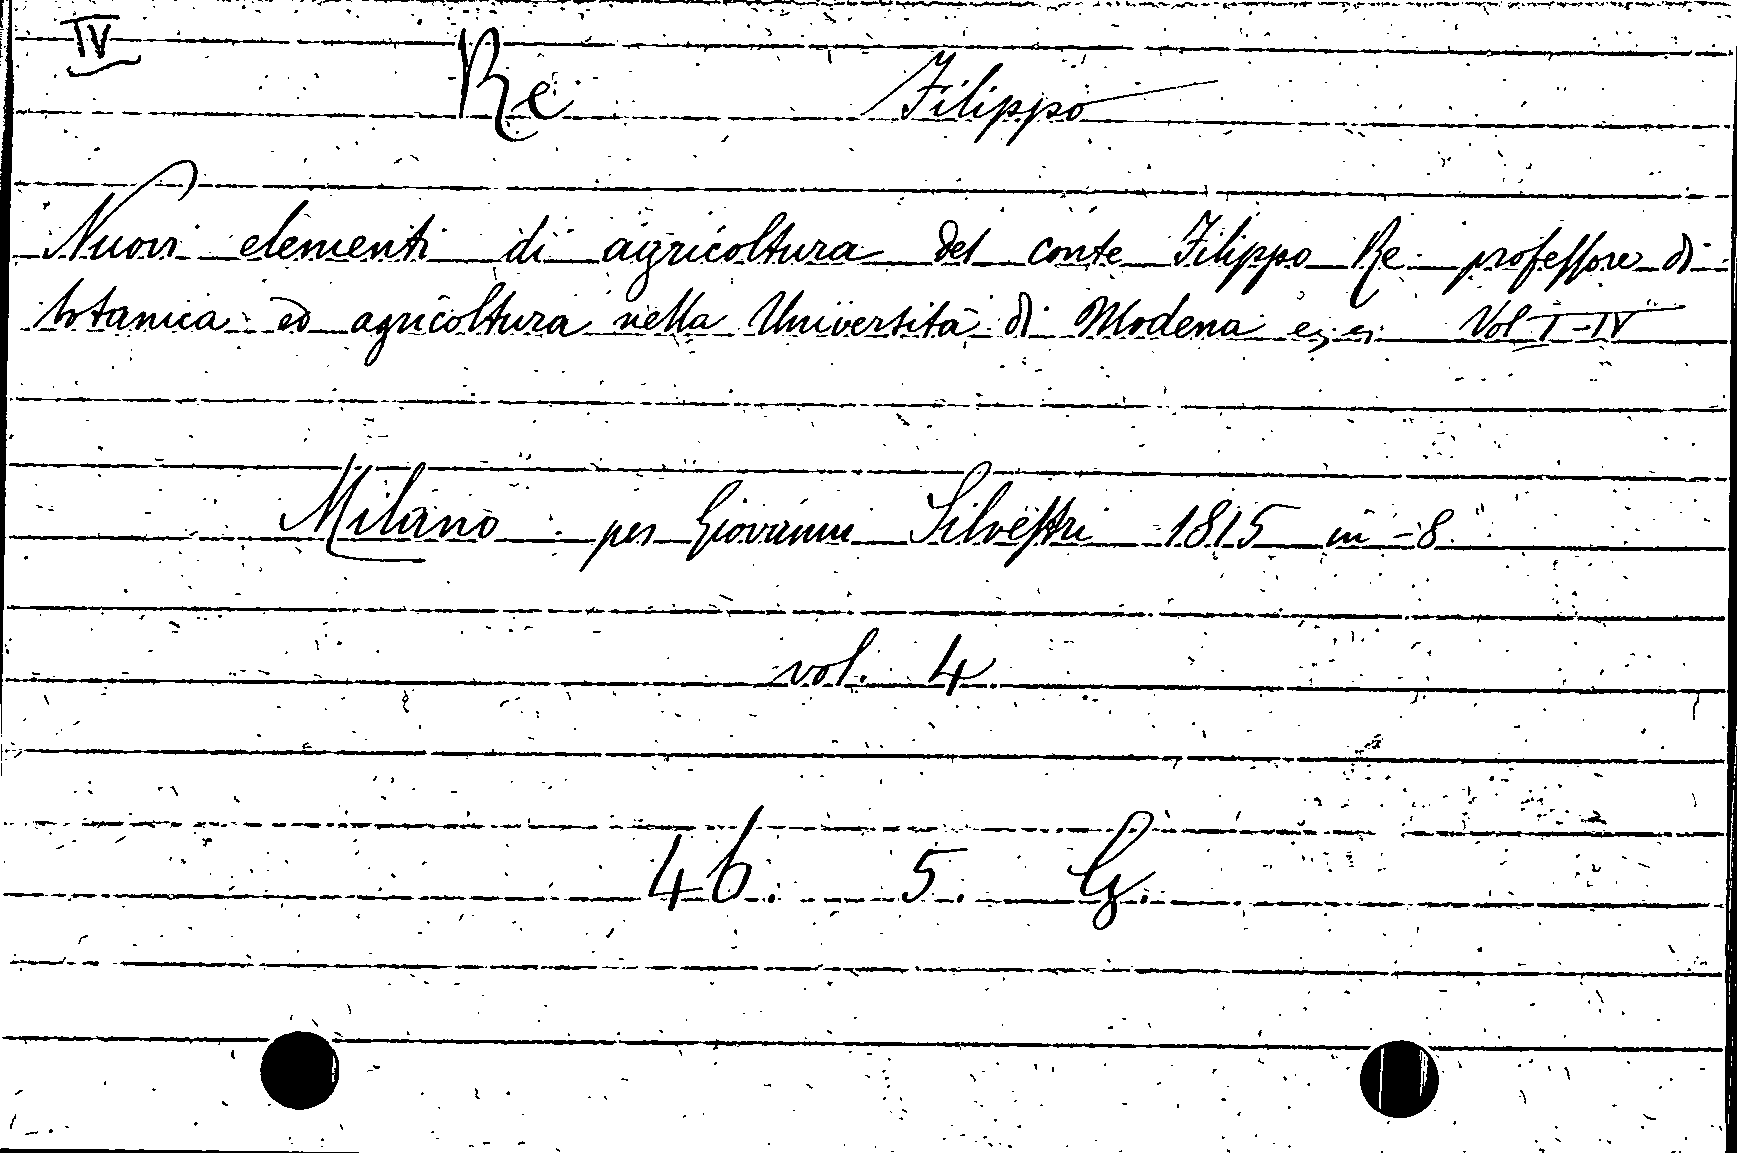 IV
Re Filippo
Nuovi elementi di agricoltura del conte Filippo Re professore di
botanica ed agricoltura nella Università di Modena Vol I-IV
Milano per Giovanni Silvestri 1815 in-8°
vol. 4
46. 5. G.